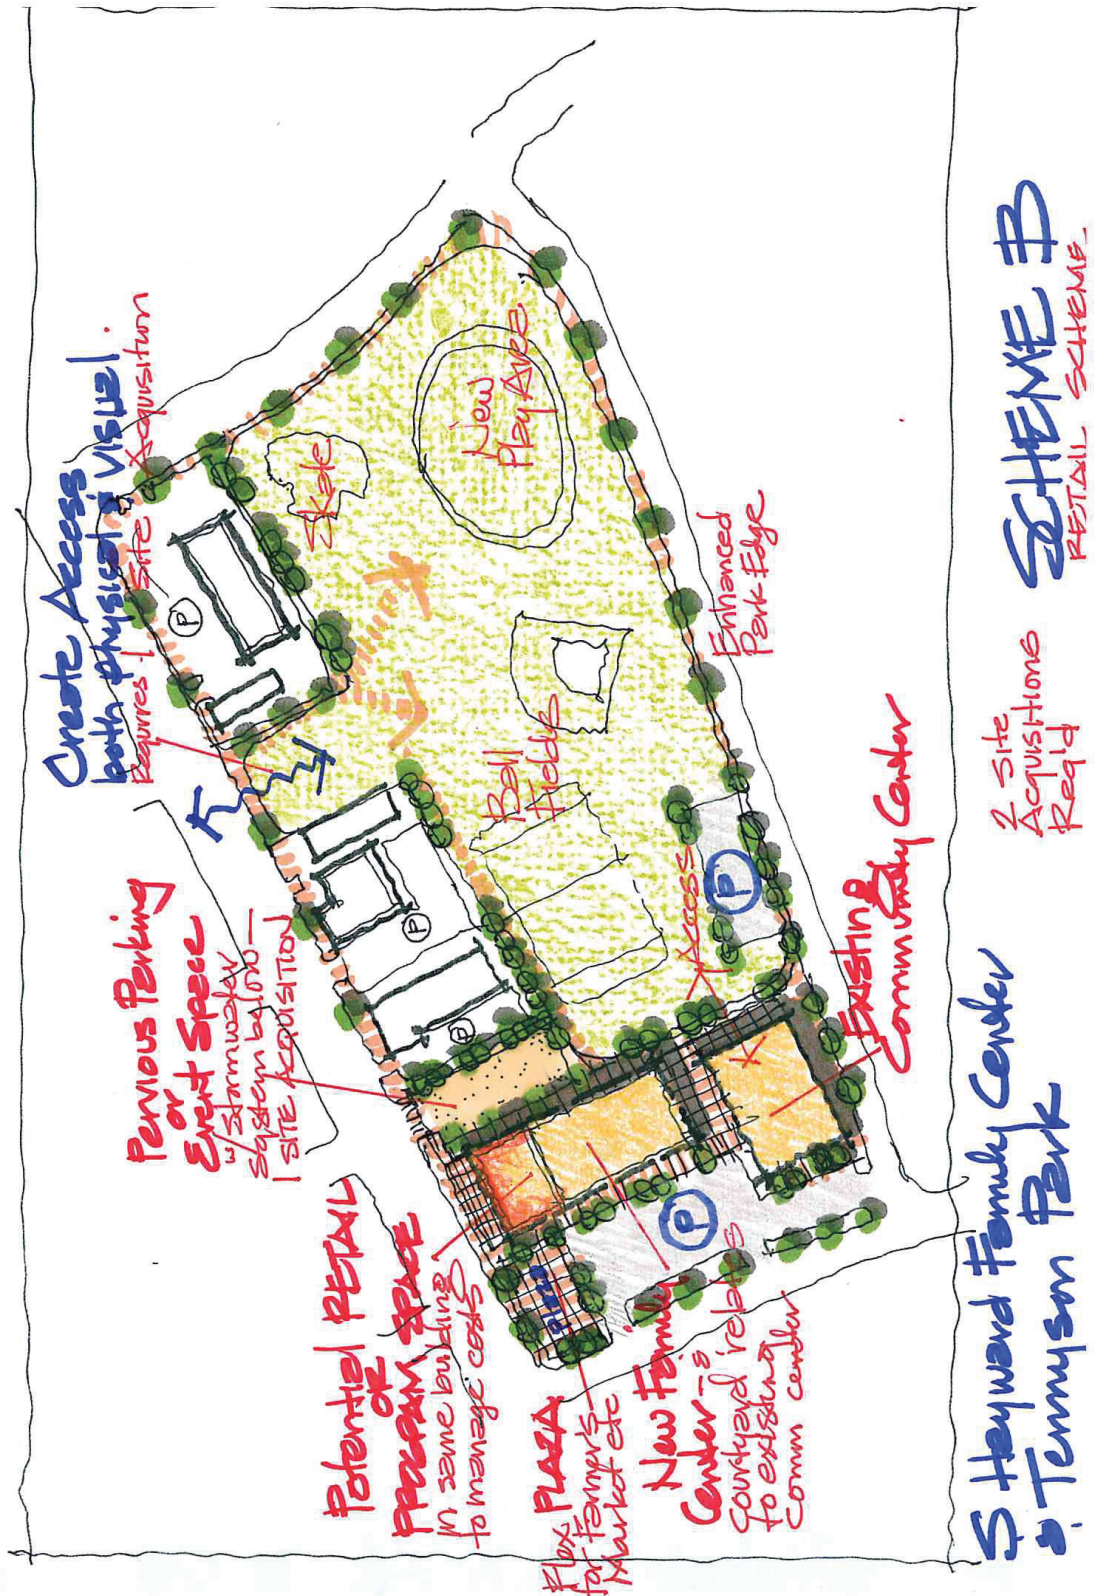 Create Access
both physical & visual.
Requires 1 Site Acquisition
Pervious Parking
or
Event Space
w/ stormwater
system below—
1 SITE ACQUISITION
Potential RETAIL
OR
PROGRAM SPACE
in same building
to manage costs
Flex PLAZA
for farmer's
Market etc
New Family
Center-
courtyard relates
to existing
comm center
plaza
P
P
P
P
P
Skate
New
Play Area
Ball
Fields
Access
Enhanced
Park Edge
Existing
Community Center
S Hayward Family Center
& Tennyson Park
2 Site
Acquisitions
Req'd
SCHEME B
RETAIL SCHEME